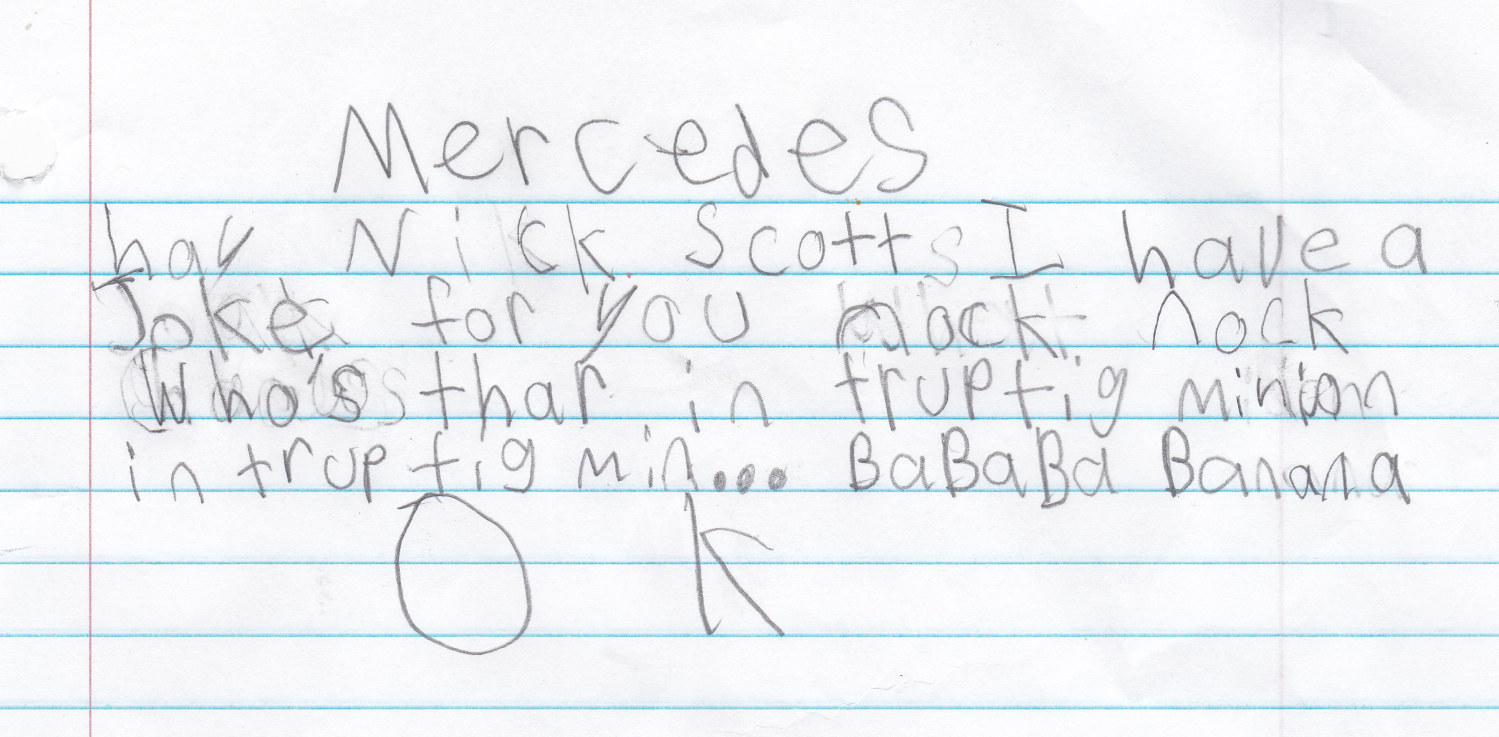 Mercedes
hay Nick Scotts I have a
Joke for you nock nock
Who's thar in truptig minion
in truptig min... BaBaBa Banana
O K